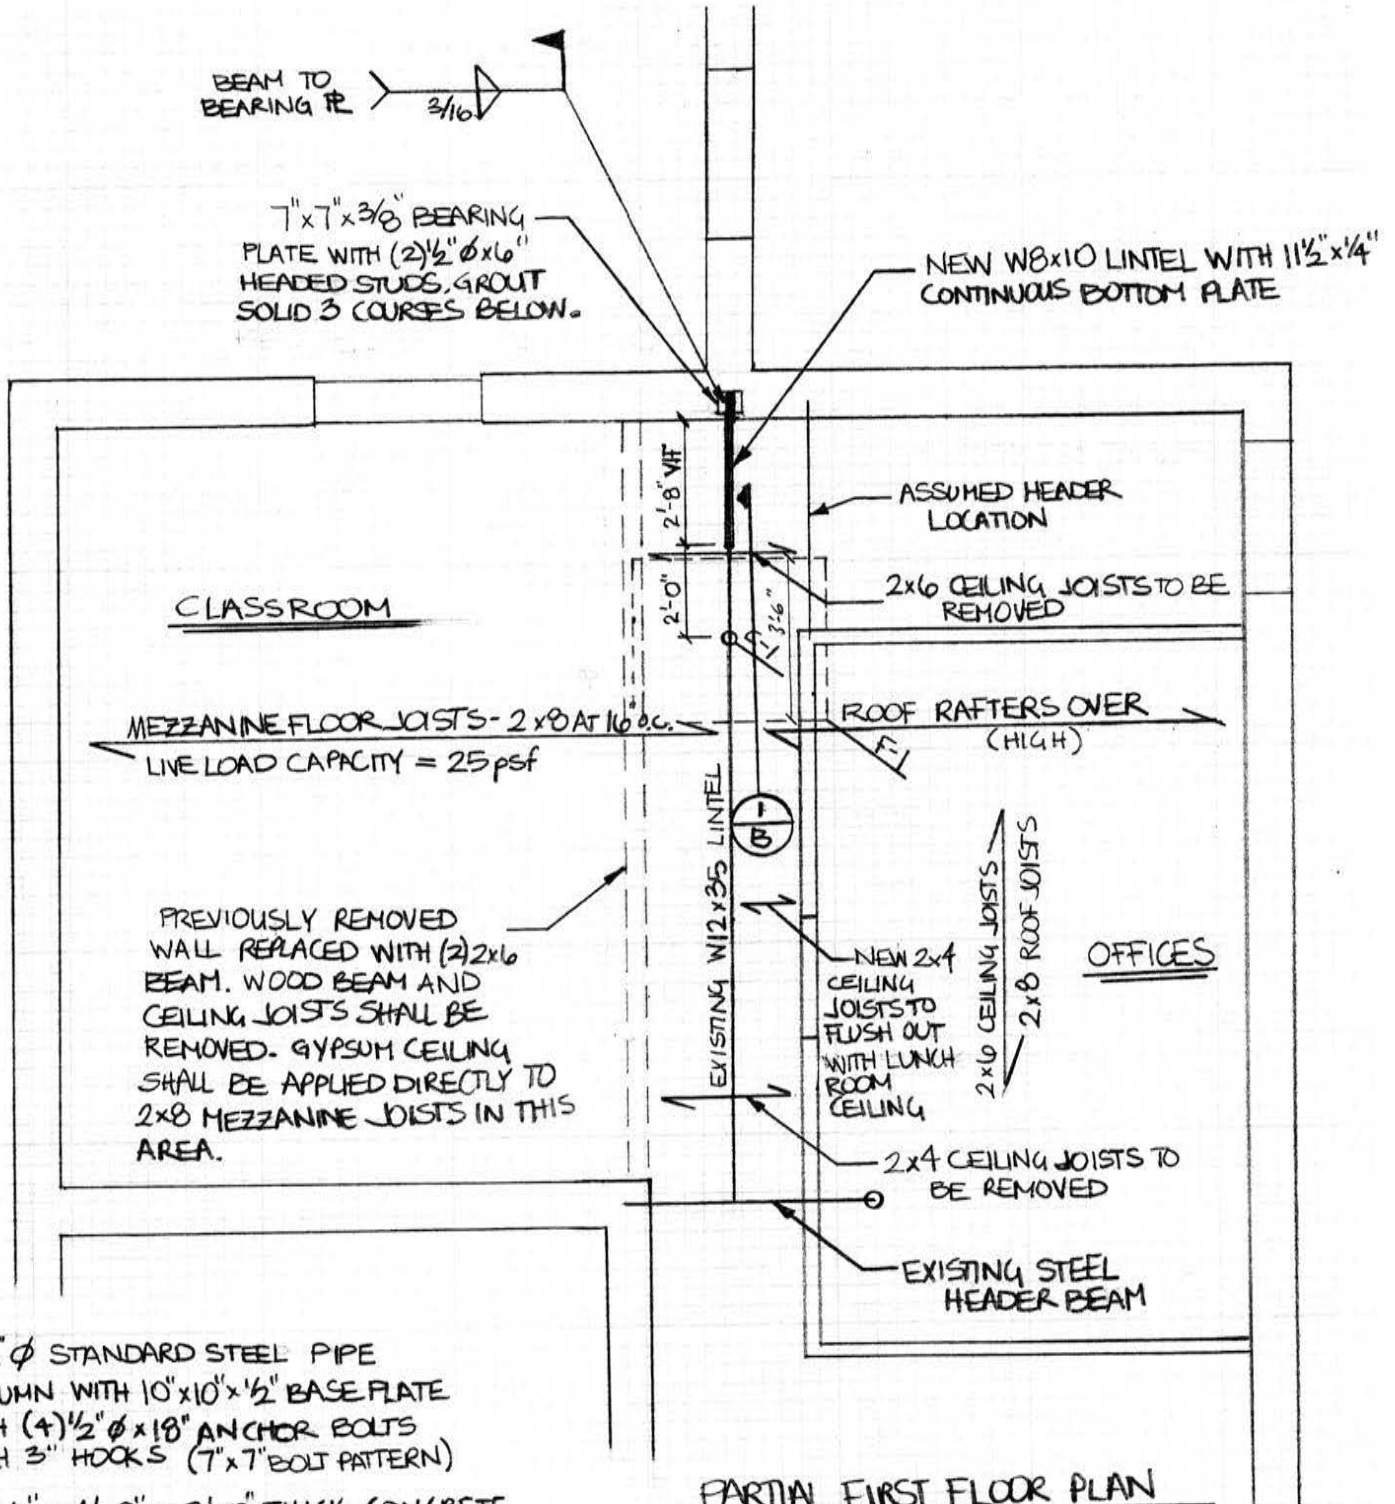 BEAM TO
BEARING PL
3/16
7"x7"x3/8" BEARING
PLATE WITH (2)1/2"φx6"
HEADED STUDS. GROUT
SOLID 3 COURSES BELOW.
NEW W8x10 LINTEL WITH 11 1/2"x1/4"
CONTINUOUS BOTTOM PLATE
2'-8" VIF
ASSUMED HEADER
LOCATION
2'-0"
3'-6"
2x6 CEILING JOISTS TO BE
REMOVED
CLASSROOM
MEZZANINE FLOOR JOISTS- 2x8 AT 16" O.C.
LIVE LOAD CAPACITY = 25psf
ROOF RAFTERS OVER
(HIGH)
F-1
EXISTING W12x35 LINTEL
1
B
PREVIOUSLY REMOVED
WALL REPLACED WITH (2)2x6
BEAM. WOOD BEAM AND
CEILING JOISTS SHALL BE
REMOVED. GYPSUM CEILING
SHALL BE APPLIED DIRECTLY TO
2x8 MEZZANINE JOISTS IN THIS
AREA.
NEW 2x4
CEILING
JOISTS TO
FLUSH OUT
WITH LUNCH
ROOM
CEILING
2x6 CEILING JOISTS
2x8 ROOF JOISTS
OFFICES
2x4 CEILING JOISTS TO
BE REMOVED
EXISTING STEEL
HEADER BEAM
"φ STANDARD STEEL PIPE
UMN WITH 10"x10"x1/2" BASE PLATE
H (4)1/2"φx18" ANCHOR BOLTS
H 3" HOOKS (7"x7" BOLT PATTERN)
THICK CONCRETE
PARTIAL FIRST FLOOR PLAN